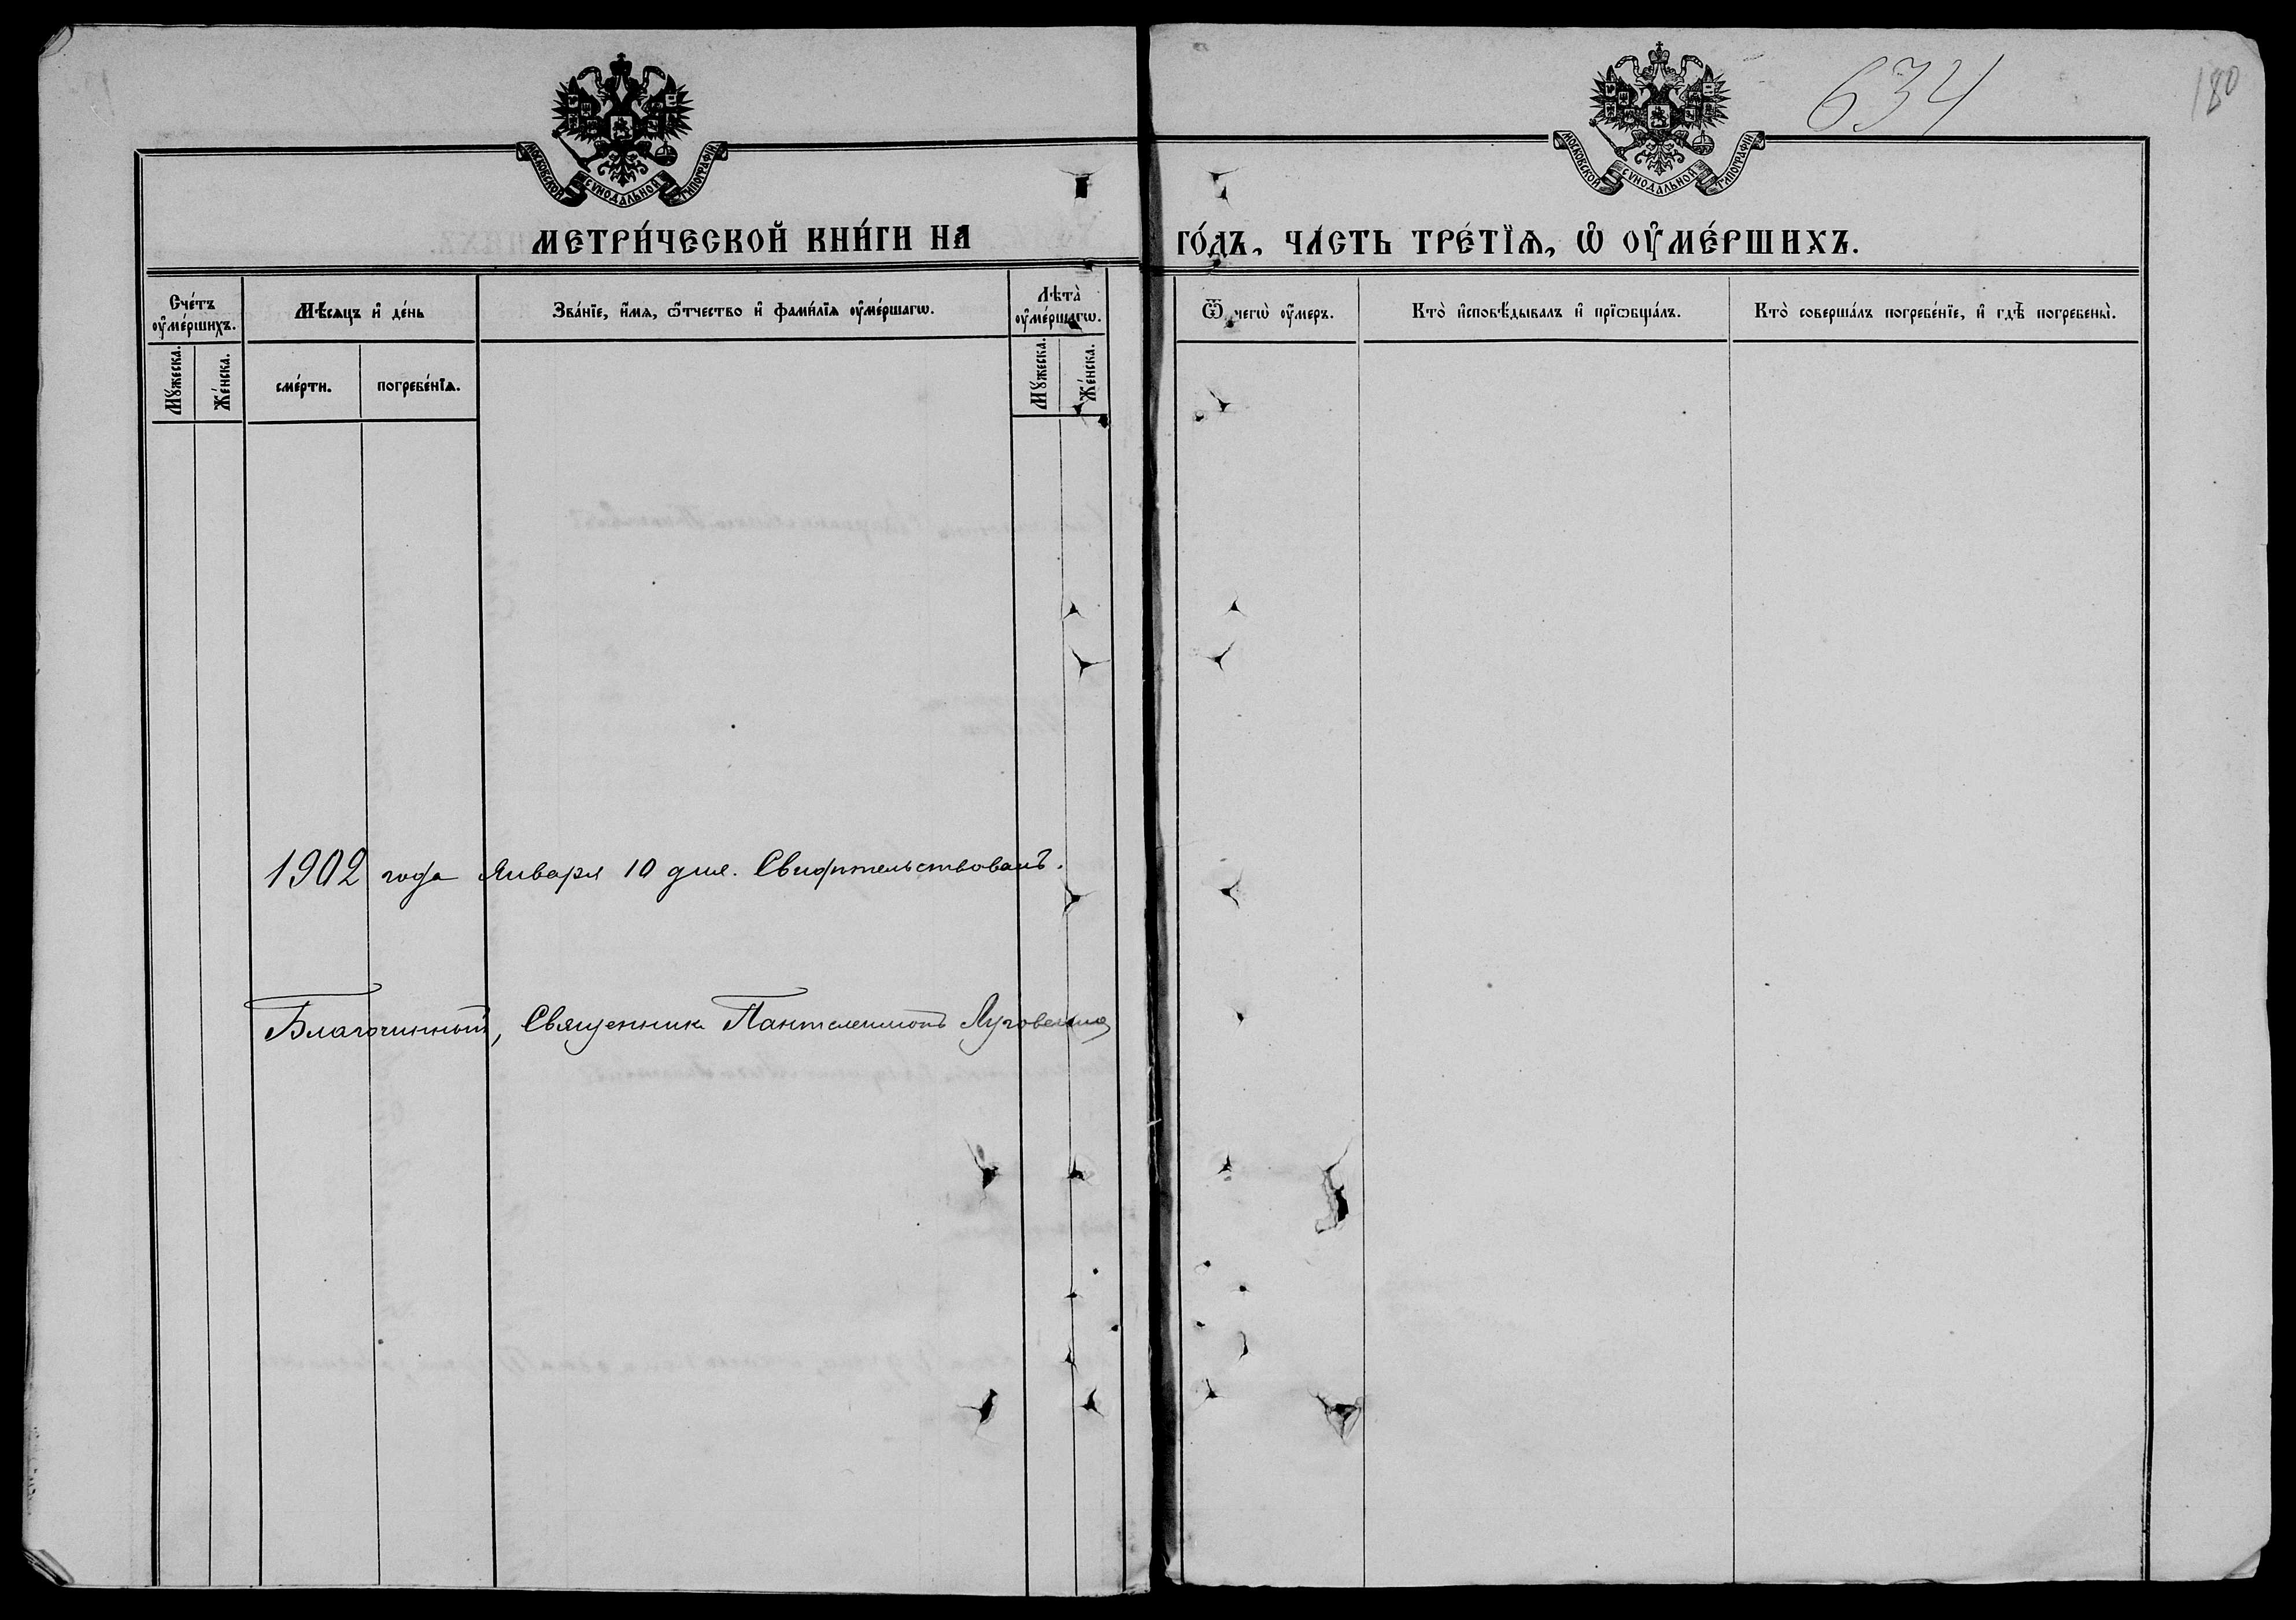 634
180
МОСКОВСКОЙ СѴНОДАЛЬНОЙ ТИПОГРАФІИ
МОСКОВСКОЙ СѴНОДАЛЬНОЙ ТИПОГРАФІИ
МЕТРИ́ЧЕСКОЙ КНИ́ГИ НА
ГО́ДЪ, ЧА́СТЬ ТРЕ́ТЇѦ, Ѡ҆ ОУ҆МЕ́РШИХЪ.
Сче́тъ оу҆ме́ршихъ.
Мѣ́сѧцъ и҆ де́нь
Зва́нїе, и҆́мѧ, ѻ҆́тчество и҆ фами́лїѧ оу҆ме́ршагѡ.
Лѣта̀ оу҆ме́ршагѡ.
Ѿ чегѡ̀ оу҆́меръ.
Кто̀ и҆сповѣ́дывалъ и҆ прїѡбща́лъ.
Кто̀ соверша́лъ погребе́нїе, и҆ гдѣ̀ погребены̀.
Мꙋ́жеска.
Же́нска.
сме́рти.
погребе́нїѧ.
Мꙋ́жеска.
Же́нска.
1902 года Января 10 дня. Свидѣтельствовалъ.
Благочинный, Священникъ Пантелеимонъ